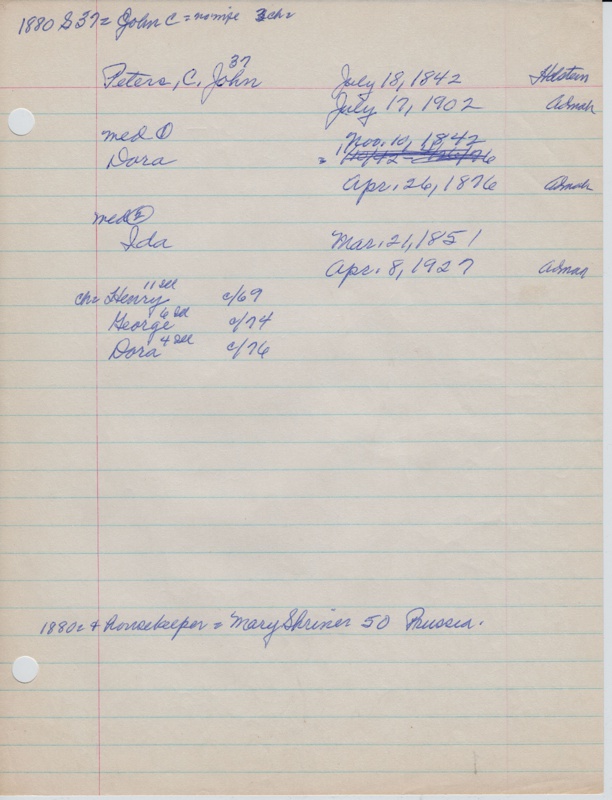 1880 S37= John C = no wife 3 chr
37
Peters, C. John July 18, 1842 Holstein
July 17, 1902 Admah
med ①
Dora Nov. 10, 1842
Apr. 26, 1876 Admah
med ②
Ida Mar. 21, 1851
Apr. 8, 1927 Admah
ch= Henry 11 c/69
George 6 c/74
Dora 4 c/76
1880= + Housekeeper = Mary Shriner 50 Prussia.